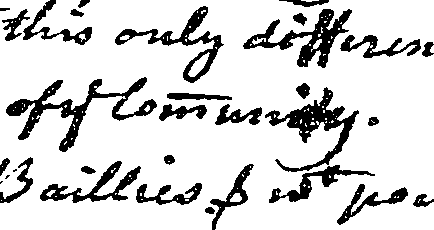 this only differen
of yͤ Com̅unity.
Baillies & wᵗ pow